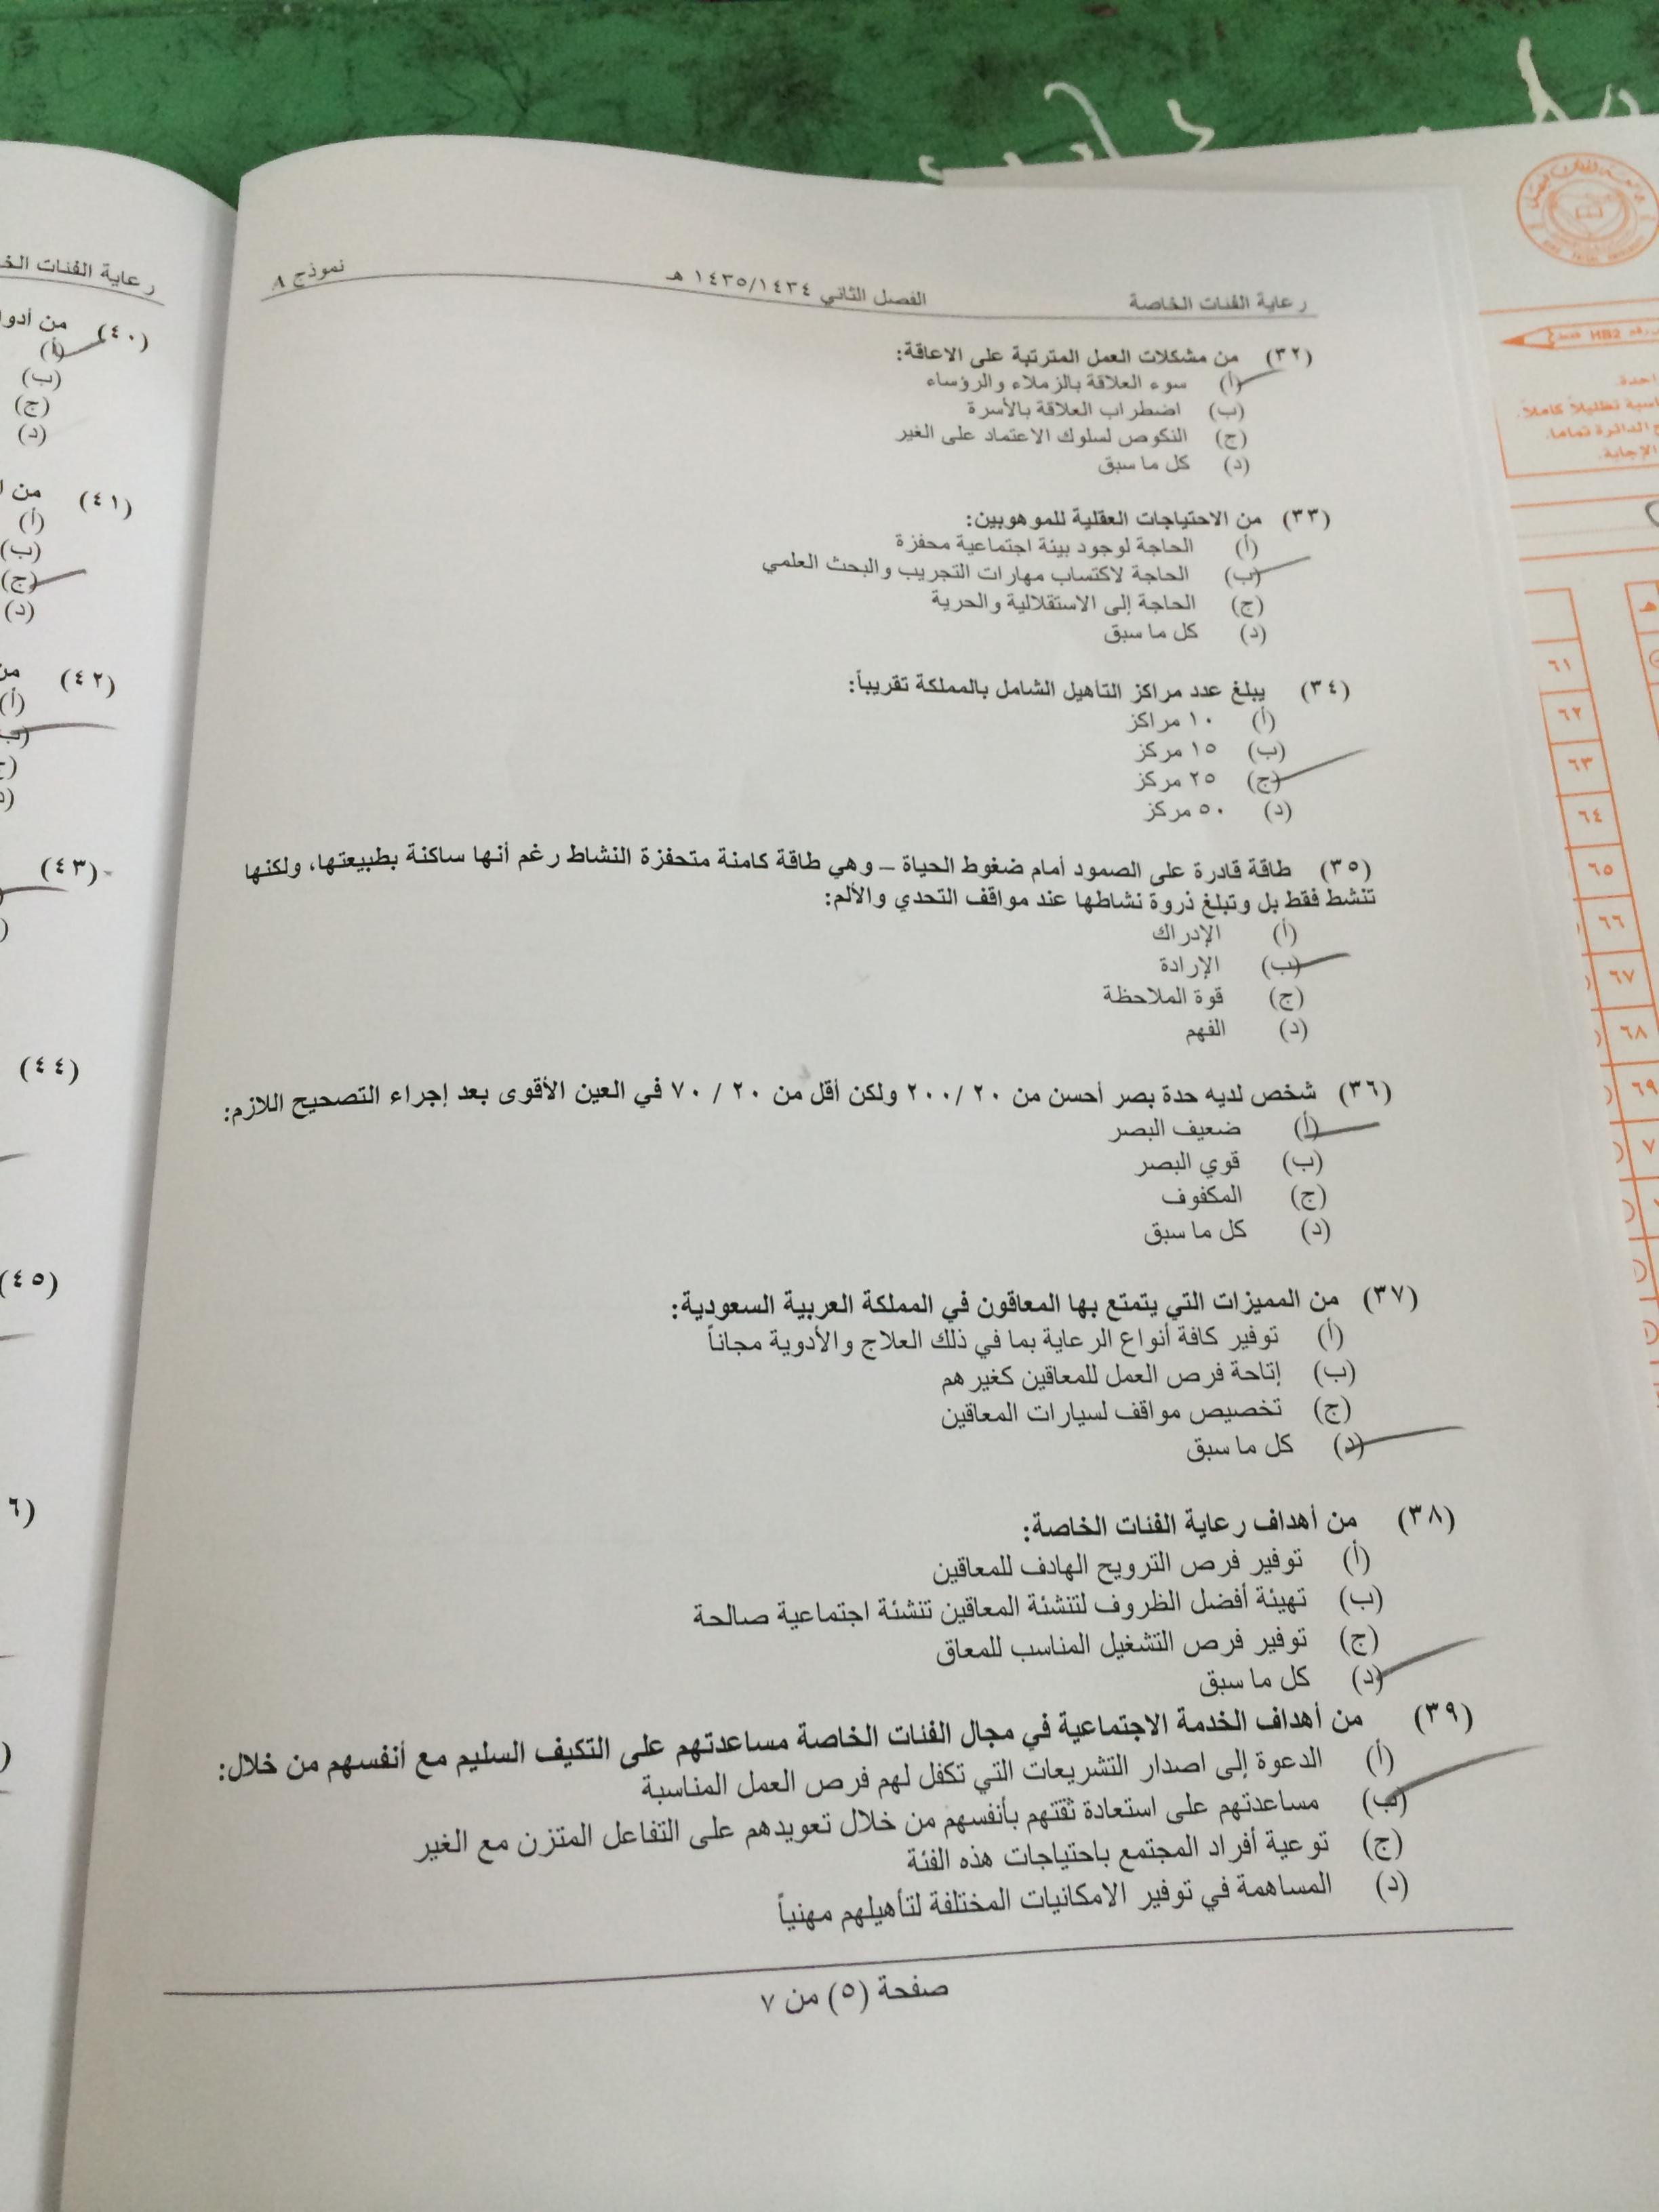 رعاية الفئات الخاصة
الفصل الثاني ١٤٣٥/١٤٣٤ هـ
نموذج A
(٣٢) من مشكلات العمل المترتبة على الاعاقة:
(أ) سوء العلاقة بالزملاء والرؤساء
(ب) اضطراب العلاقة بالأسرة
(ج) النكوص لسلوك الاعتماد على الغير
(د) كل ما سبق
(٣٣) من الاحتياجات العقلية للموهوبين:
(أ) الحاجة لوجود بيئة اجتماعية محفزة
(ب) الحاجة لاكتساب مهارات التجريب والبحث العلمي
(ج) الحاجة إلى الاستقلالية والحرية
(د) كل ما سبق
(٣٤) يبلغ عدد مراكز التأهيل الشامل بالمملكة تقريباً:
(أ) ١٠ مراكز
(ب) ١٥ مركز
(ج) ٢٥ مركز
(د) ٥٠ مركز
(٣٥) طاقة قادرة على الصمود أمام ضغوط الحياة – وهي طاقة كامنة متحفزة النشاط رغم أنها ساكنة بطبيعتها، ولكنها
تنشط فقط بل وتبلغ ذروة نشاطها عند مواقف التحدي والألم:
(أ) الإدراك
(ب) الإرادة
(ج) قوة الملاحظة
(د) الفهم
(٣٦) شخص لديه حدة بصر أحسن من ٢٠ /٢٠٠ ولكن أقل من ٢٠ / ٧٠ في العين الأقوى بعد إجراء التصحيح اللازم:
(أ) ضعيف البصر
(ب) قوي البصر
(ج) المكفوف
(د) كل ما سبق
(٣٧) من المميزات التي يتمتع بها المعاقون في المملكة العربية السعودية:
(أ) توفير كافة أنواع الرعاية بما في ذلك العلاج والأدوية مجاناً
(ب) إتاحة فرص العمل للمعاقين كغيرهم
(ج) تخصيص مواقف لسيارات المعاقين
(د) كل ما سبق
(٣٨) من أهداف رعاية الفئات الخاصة:
(أ) توفير فرص الترويح الهادف للمعاقين
(ب) تهيئة أفضل الظروف لتنشئة المعاقين تنشئة اجتماعية صالحة
(ج) توفير فرص التشغيل المناسب للمعاق
(د) كل ما سبق
(٣٩) من أهداف الخدمة الاجتماعية في مجال الفئات الخاصة مساعدتهم على التكيف السليم مع أنفسهم من خلال:
(أ) الدعوة إلى اصدار التشريعات التي تكفل لهم فرص العمل المناسبة
(ب) مساعدتهم على استعادة ثقتهم بأنفسهم من خلال تعويدهم على التفاعل المتزن مع الغير
(ج) توعية أفراد المجتمع باحتياجات هذه الفئة
(د) المساهمة في توفير الامكانيات المختلفة لتأهيلهم مهنياً
صفحة (٥) من ٧
رعاية الفئات
(٤٠) من
(أ)
(ب)
(ج)
(د)
(٤١) من
(أ)
(ب)
(ج)
(د)
(٤٢) من
(أ)
(٤٣)
(٤٤)
(٤٥)
HB2 فقط
الدائرة تماما.
الإجابة.
٦١
٦٢
٦٣
٦٤
٦٥
٦٦
٦٧
٦٨
٦٩